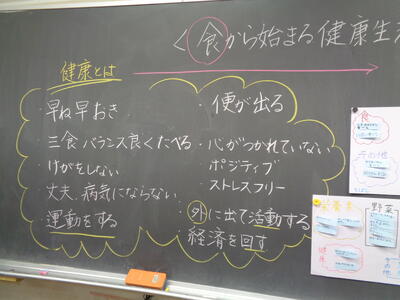 <食から始まる健康生
健康とは
・早ね早おき
・三食バランス良くたべる
・けがをしない
・丈夫、病気にならない
・運動をする
・便が出る
・心がつかれていない
ポジティブ
ストレスフリー
・外に出て活動する
・経済を回す
食
その他
栄養素
野菜
健康